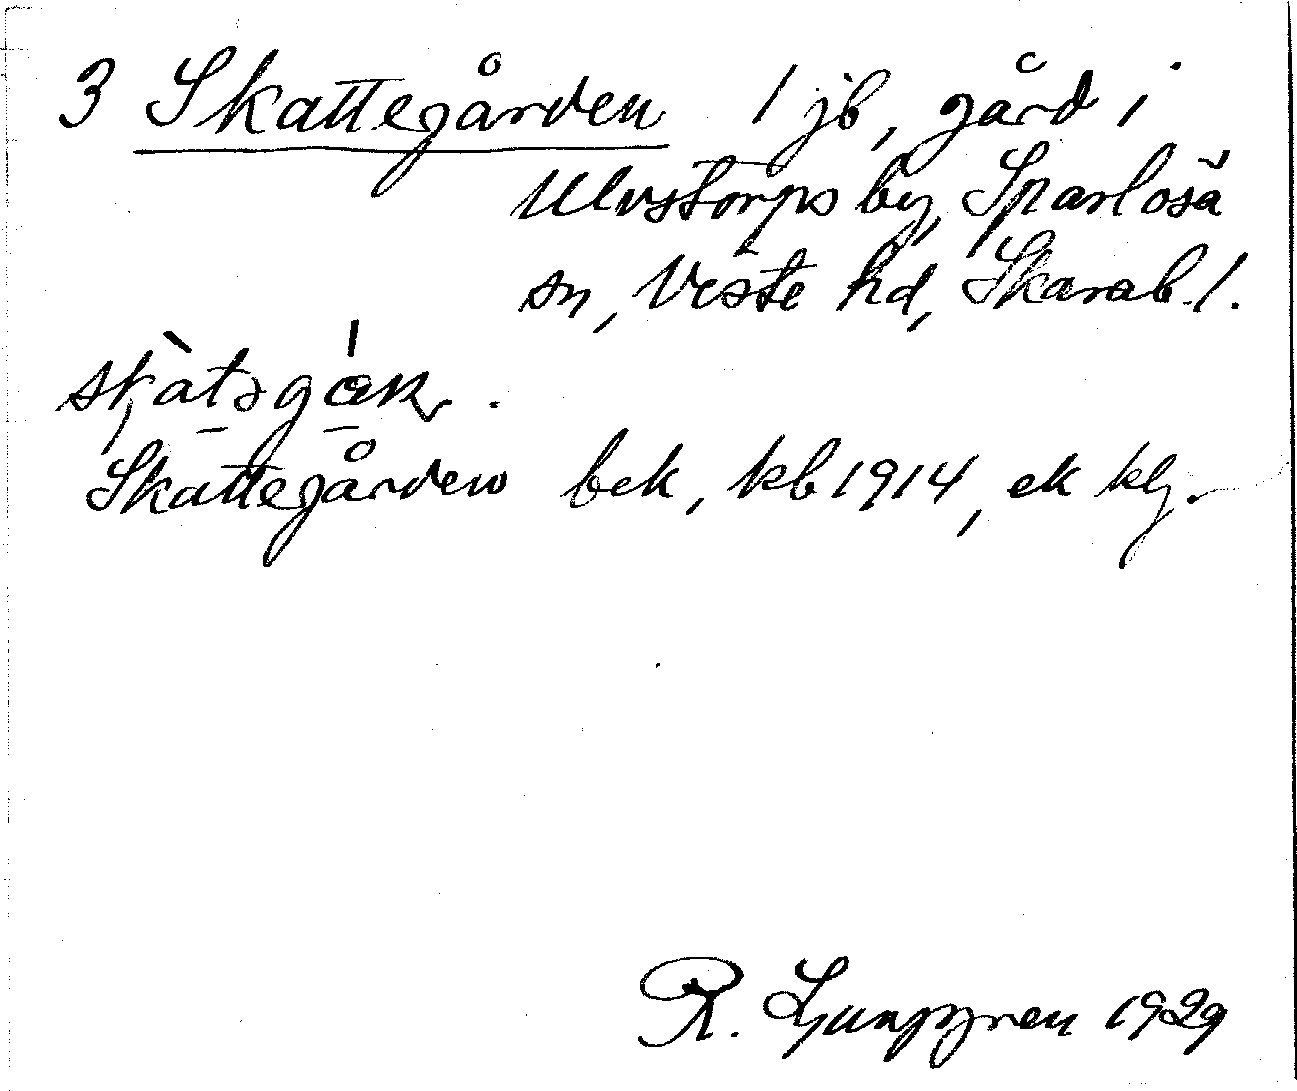 3 Skattegården 1 jb, gård i
Ulvstorps by, Sparlösa
sn, Viste hd, Skarab. l.
Skattegården bek, kb 1914, ek klj.
R. Ljunggren 1929